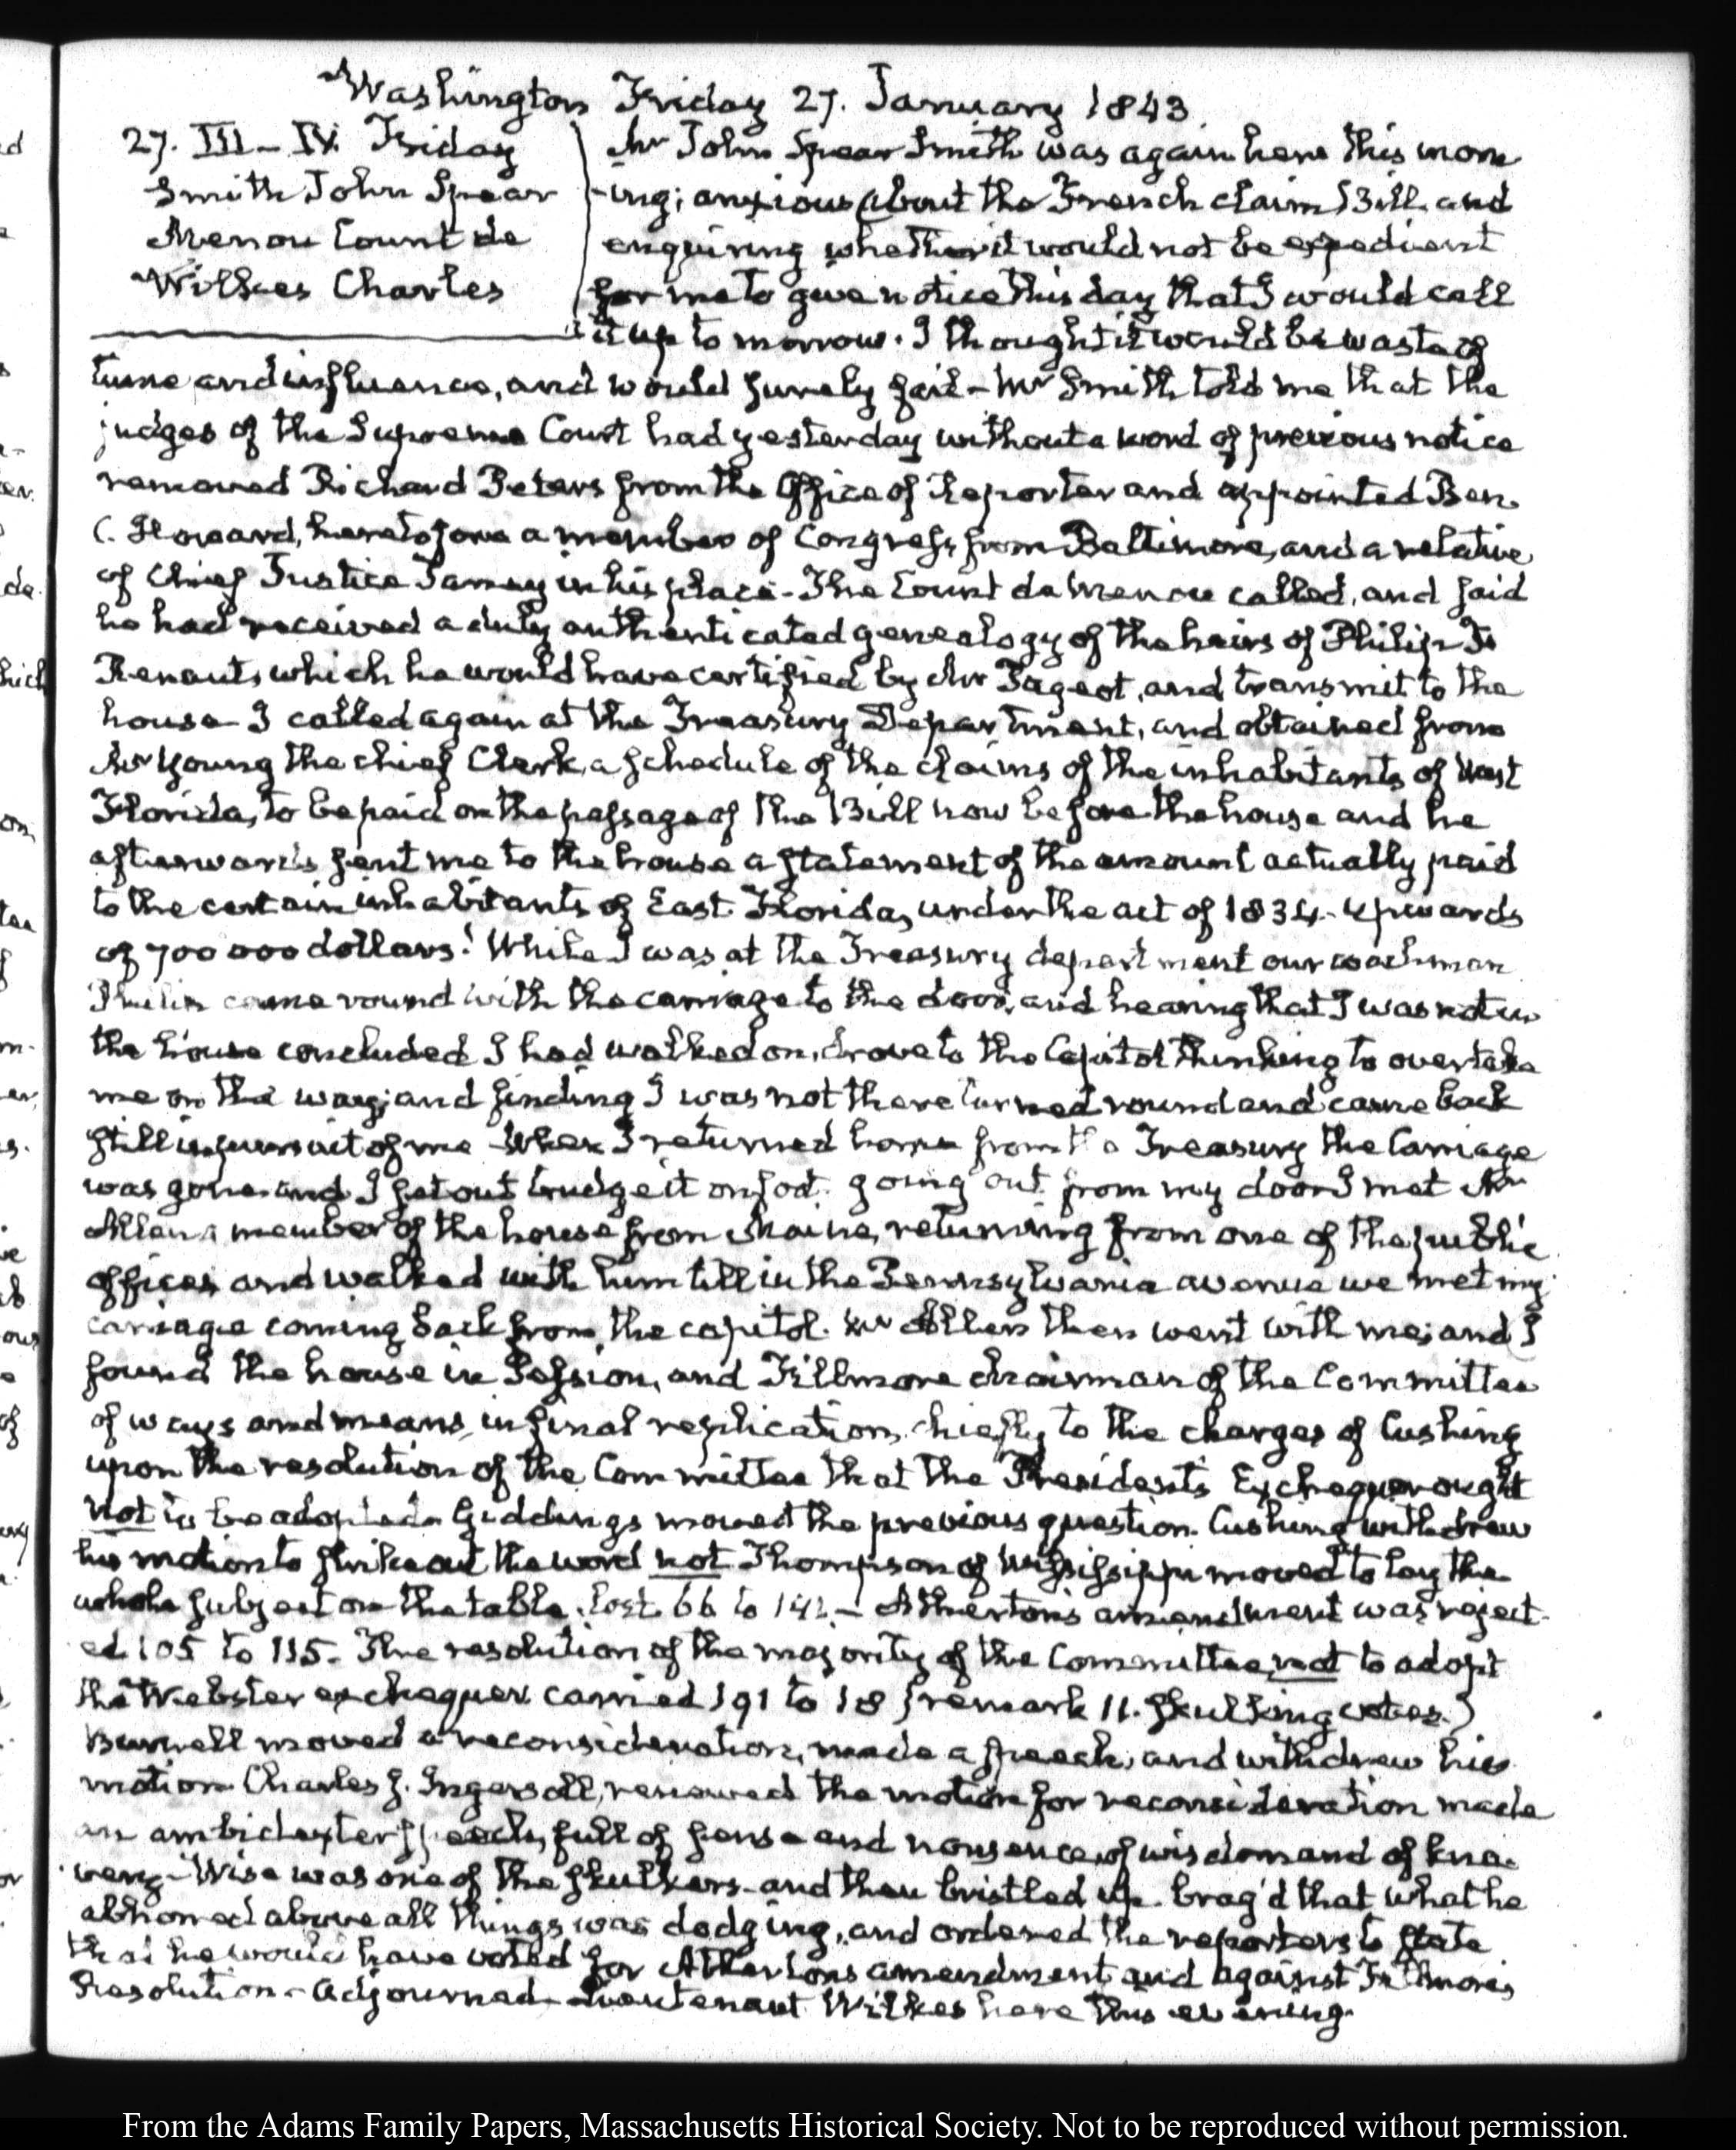 Washington Friday 27. January 1843.
27. III–IV. Friday
Smith John Spear
Menou Count de
Wilkes Charles
Mr John Spear Smith was again here this morn
-ing; anxious about the French claims Bill and
enquiring whether it would not be expedient
for me to give notice this day that I would call
it up to morrow. I thought it would be waste of
time and influence, and would surely fail – Mr Smith told me that the
judges of the Supreme Court had yesterday without a word of previous notice
removed Richard Peters from the Office of Reporter and appointed Ben.
C. Howard, heretofore a member of Congress from Baltimore, and a relative
of Chief Justice Taney in his place – The Count de Menou called, and said
he had received a duly authenticated genealogy of the heirs of Philip
Renault, which he would have certified by Mr Pageot, and transmit to the
house – I called again at the Treasury Department, and obtained from
Mr Young the chief Clerk, a schedule of the claims of the inhabitants of West
Florida, to be paid on the passage of the Bill now before the house and he
afterwards sent me to the house a statement of the amount actually paid
to the certain inhabitants of East Florida, under the act of 1834 – upwards
of 700 000 dollars! While I was at the Treasury department our coachman
Philip came round with the carriage to the door, and hearing that I was not in
the house concluded I had walked on, drove to the Capitol thinking to overtake
me on the way; and finding I was not there turned round and came back
still in pursuit of me – When I returned home from the Treasury the Carriage
was gone and I set out to trudge it on foot. going out from my door I met Mr
Allen a member of the house from Maine, returning from one of the public
offices and walked with him till in the Pennsylvania avenue we met my
carriage coming back from the capitol. Mr Allen then went with me; and I
found the house in Session, and Fillmore chairman of the Committee
of ways and means, in final replication, chiefly to the charges of Cushing
upon the resolution of the Committee that the President's Exchequer ought
not to be adopted – Giddings moved the previous question. Cushing withdrew
his motion to strike out the word not Thompson of Mississippi moved to lay the
whole subject on the table. lost. 66 to 142 – Atherton's amendment was reject-
ed 105 to 115. The resolution of the majority of the Committee, not to adopt
the Webster exchequer carried 191 to 18 (remark 11. skulking votes.)
Burnell moved a reconsideration, made a speech, and withdrew his
motion Charles J. Ingersoll, renewed the motion for reconsideration made
an ambidexter speech, full of sense and nonsence, of wisdom and of kna-
very – Wise was one of the skulkers – and then bristled up – brag'd that what he
abhorred above all things was dodging, and ordered the reporters to state
that he would have voted for Atherton's amendment and against Fillmore's
Resolution – Adjourned – Lieutenant Wilkes here this evening.
From the Adams Family Papers, Massachusetts Historical Society. Not to be reproduced without permission.